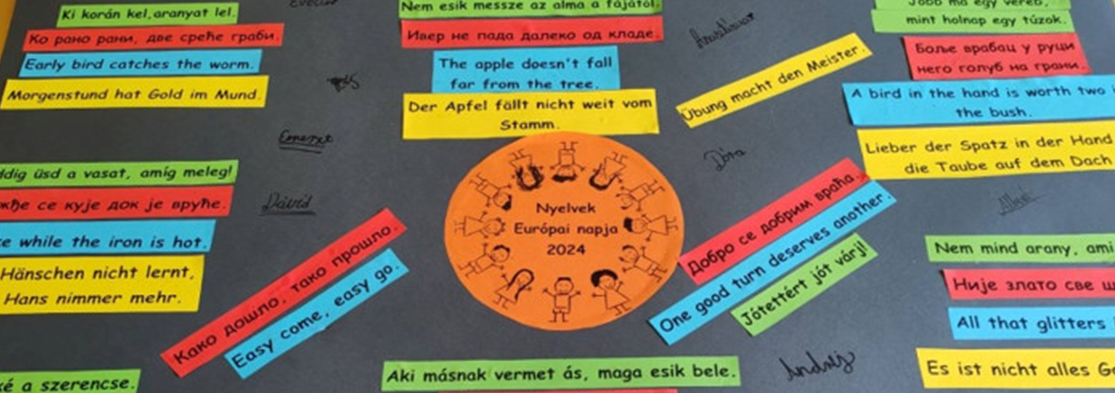 Ki korán kel, aranyat lel.
Ко рано рани, две среће граби.
Early bird catches the worm.
Morgenstund hat Gold im Mund.
Nem esik messze az alma a fájától.
Ивер не пада далеко од кладе.
The apple doesn't fall
far from the tree.
Der Apfel fällt nicht weit vom
Stamm.
Übung macht den Meister.
Jobb ma egy veréb,
mint holnap egy túzok.
Боље врабац у руци
него голуб на грани.
A bird in the hand is worth two
the bush.
Lieber der Spatz in der Hand
die Taube auf dem Dach
Emerzt
Dóra
Dávid
üsd a vasat, amíg meleg!
се кује док је вруће.
while the iron is hot.
Hänschen nicht lernt,
Hans nimmer mehr.
Како дошло, тако прошло.
Easy come, easy go.
Nyelvek
Európai napja
2024
Добро се добрим враћа.
One good turn deserves another.
Jótettért jót várj!
Nem mind arany, ami
Није злато све
All that glitters
Es ist nicht alles
a szerencse.
Aki másnak vermet ás, maga esik bele.